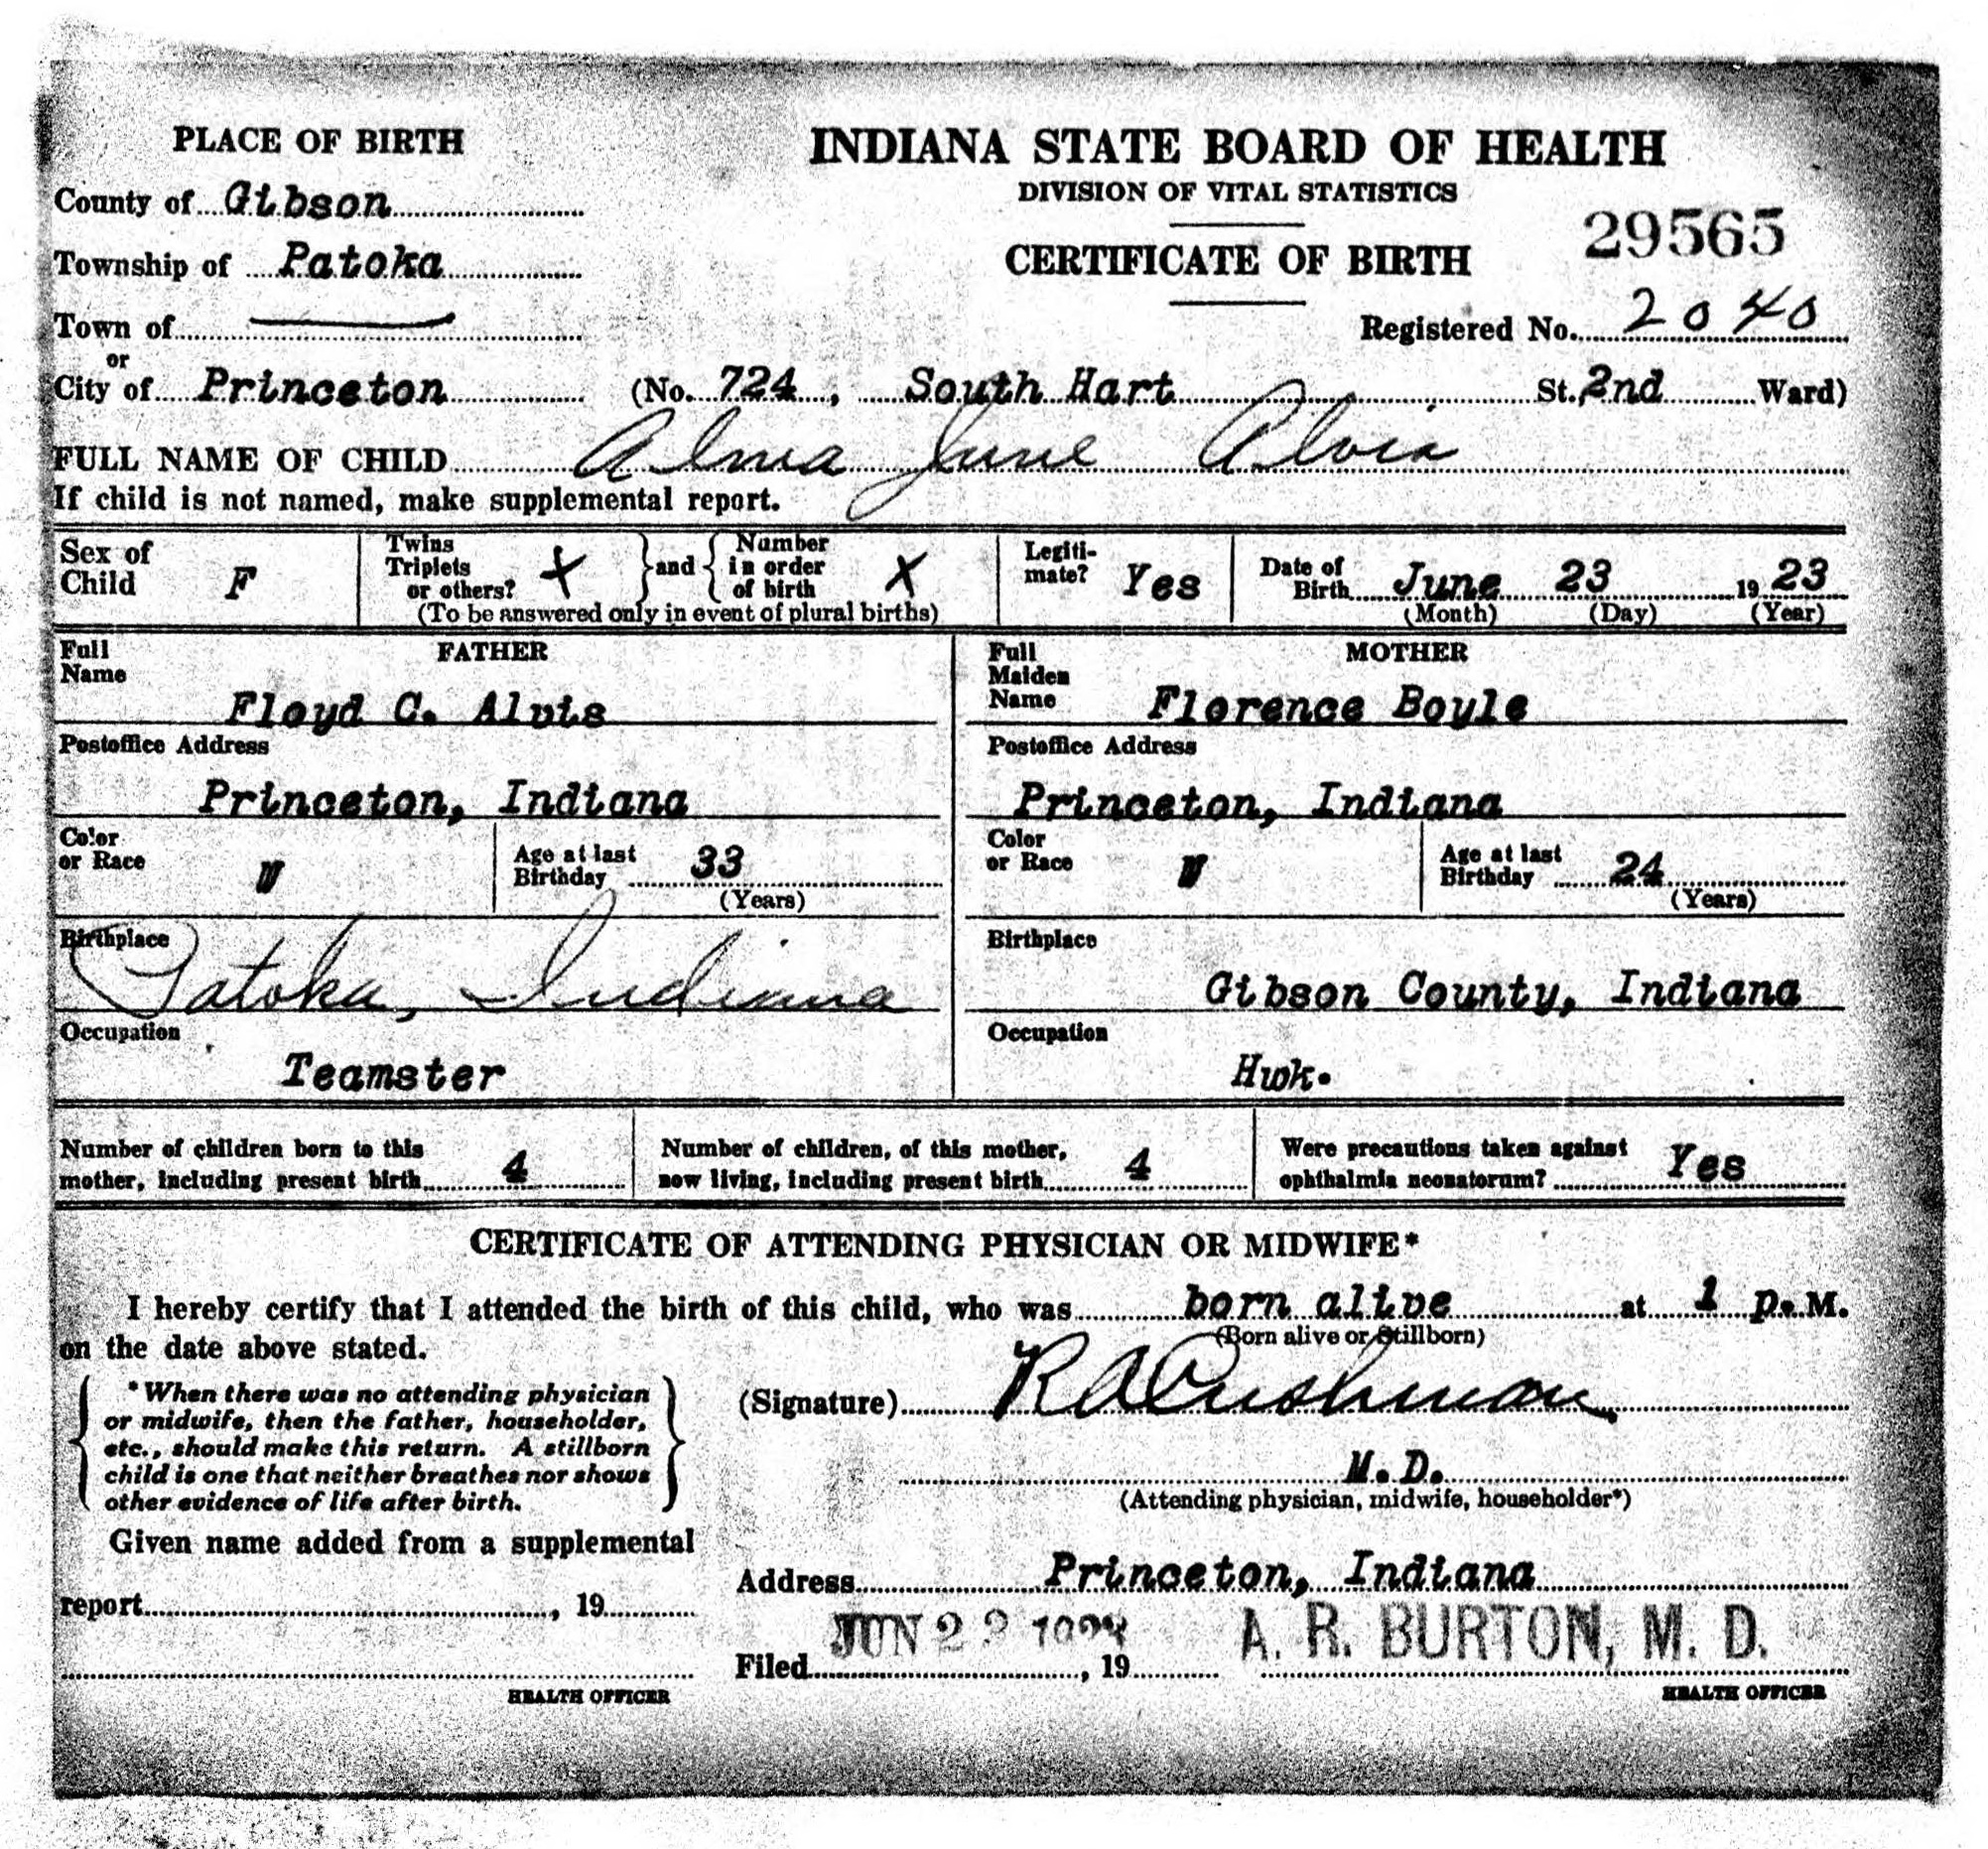 PLACE OF BIRTH
INDIANA STATE BOARD OF HEALTH
DIVISION OF VITAL STATISTICS
County of Gibson
29565
CERTIFICATE OF BIRTH
Township of Patoka
Registered No. 2040
Town of
or
City of Princeton (No. 724, South Hart St. 2nd Ward)
FULL NAME OF CHILD Alma June Alvis
If child is not named, make supplemental report.
Sex of Child F
Twins Triplets or others? X and Number in order of birth X
(To be answered only in event of plural births)
Legiti-mate? Yes
Date of Birth June 23 19 23
(Month) (Day) (Year)
FATHER
Full Name
Floyd C. Alvis
Postoffice Address
Princeton, Indiana
Color or Race W
Age at last Birthday 33
(Years)
Birthplace
Patoka, Indiana
Occupation
Teamster
MOTHER
Full Maiden Name Florence Boyle
Postoffice Address
Princeton, Indiana
Color or Race W
Age at last Birthday 24
(Years)
Birthplace
Gibson County, Indiana
Occupation
Hwk.
Number of children born to this mother, including present birth 4
Number of children, of this mother, now living, including present birth 4
Were precautions taken against ophthalmia neonatorum? Yes
CERTIFICATE OF ATTENDING PHYSICIAN OR MIDWIFE*
I hereby certify that I attended the birth of this child, who was born alive at 1 p. M.
(Born alive or Stillborn)
on the date above stated.
*When there was no attending physician
or midwife, then the father, householder,
etc., should make this return. A stillborn
child is one that neither breathes nor shows
other evidence of life after birth.
(Signature) R A Cushman
M. D.
(Attending physician, midwife, householder*)
Given name added from a supplemental
report , 19
HEALTH OFFICER
Address Princeton, Indiana
JUN A. R. BURTON, M. D.
Filed , 19
HEALTH OFFICER